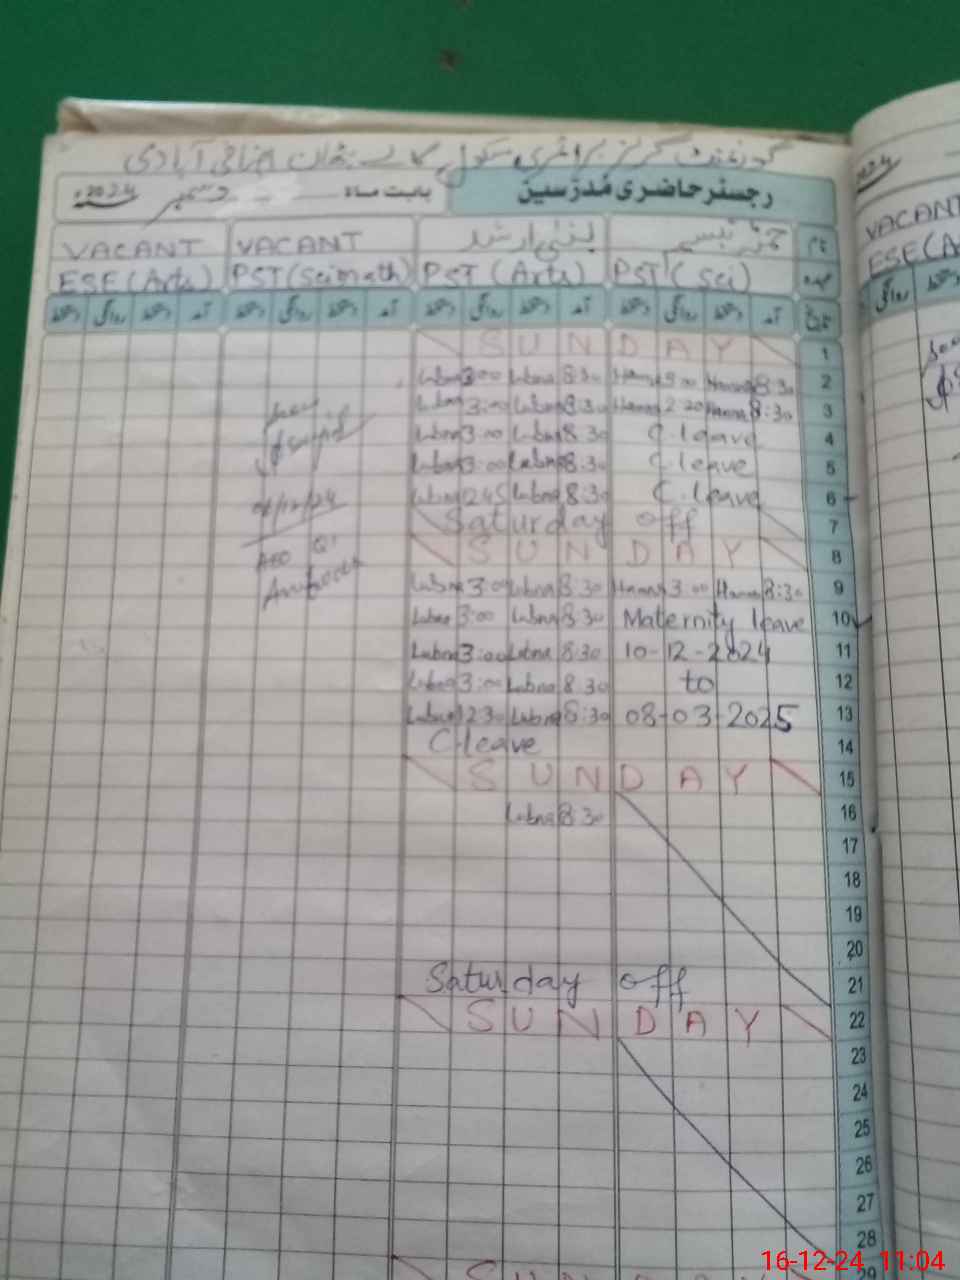 گورنمنٹ گرلز پرائمری سکول
رجسٹر حاضری مدرسین بابت ماہ دسمبر 2024ء
نام لبنیٰ ارشد VACANT VACANT
عہدہ PST (Sci) PST (Arts) PST (Sci math) ESE (Arts)
تاریخ آمد دستخط روانگی دستخط آمد دستخط روانگی دستخط آمد دستخط روانگی دستخط آمد دستخط روانگی دستخط
SUNDAY 1
Lubna 3:00 Lubna 8:30 Hamna Hamna 8:30 2
Lubna 3:00 Lubna 8:30 Hamna 2:20 Hamna 8:30 3
Lubna 3:00 Lubna 8:30 C.leave 4
Lubna 3:00 Lubna 8:30 C.leave 5
Lubna 2:45 Lubna 8:30 C.leave 6
Saturday off 7
SUNDAY 8
Lubna 3:00 Lubna 8:30 Hamna 3:00 Hamna 8:30 9
Lubna 3:00 Lubna 8:30 Maternity leave 10
Lubna 3:00 Lubna 8:30 10-12-2024 11
Lubna 3:00 Lubna 8:30 to 12
Lubna 12:30 Lubna 8:30 08-03-2025 13
C.leave 14
SUNDAY 15
Lubna 8:30 16
17
18
19
20
Saturday off 21
SUNDAY 22
23
24
25
26
27
28
SUNDAY 29
/12/24
AEO
2024ء
VACANT
ESE (A
روانگی
16-12-24 11:04